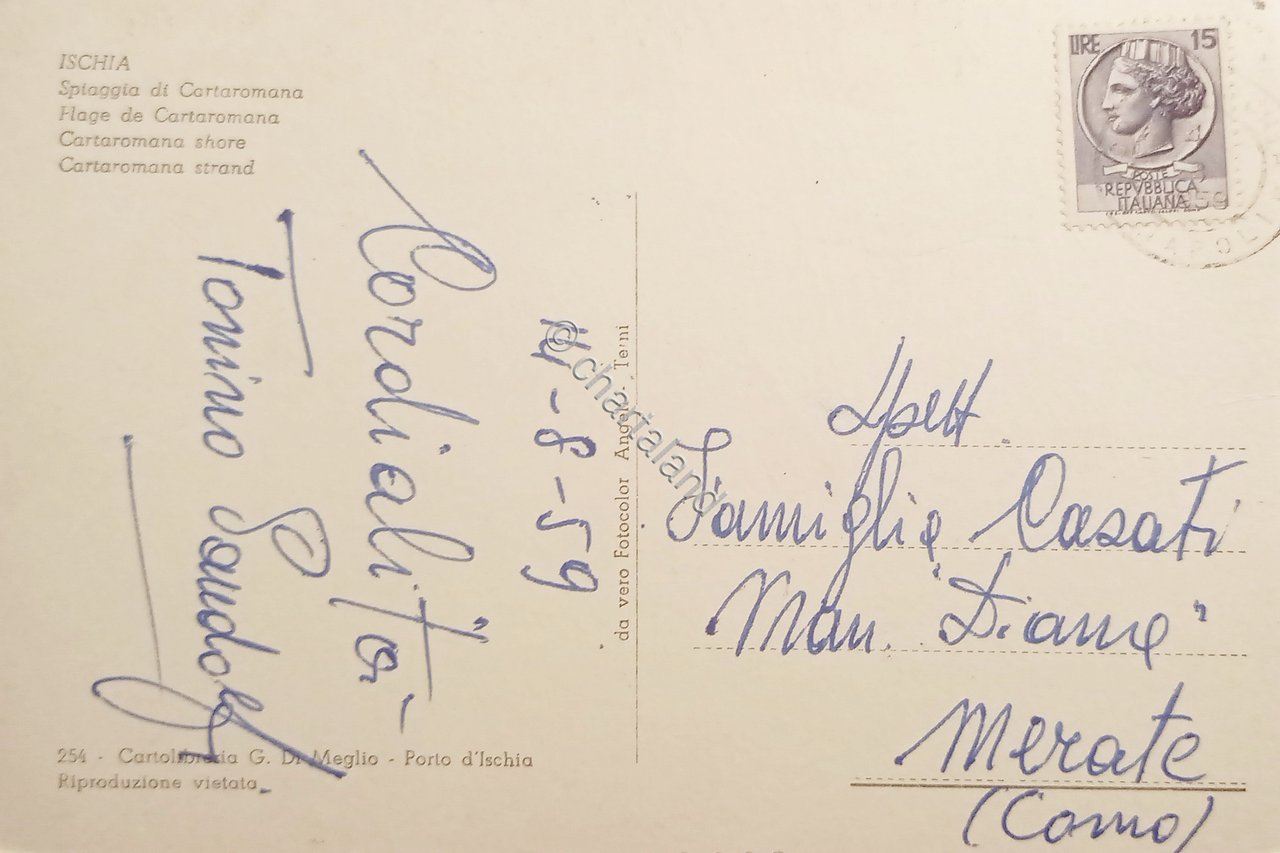 ISCHIA
Spiaggia di Cartaromana
Plage de Cartaromana
Cartaromana shore
Cartaromana strand
LIRE 15
POSTE
REPVBBLICA
ITALIANA
NAPOLI
Cordialità
Tonino
14-8-59
da vero Fotocolor Angeli - Terni
© chartaland
Spett.
Famiglia Casati
Man. "Diana"
Merate
(Como)
254 - Cartolibreria G. Di Meglio - Porto d'Ischia
Riproduzione vietata